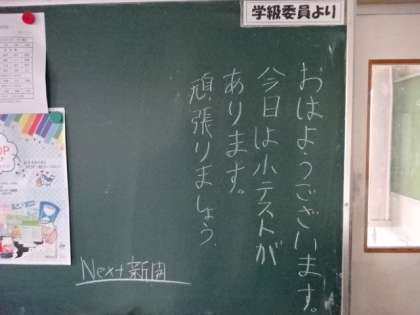 学級委員より
おはようございます。
今日は小テストが
あります。
頑張りましょう。
Next 新聞